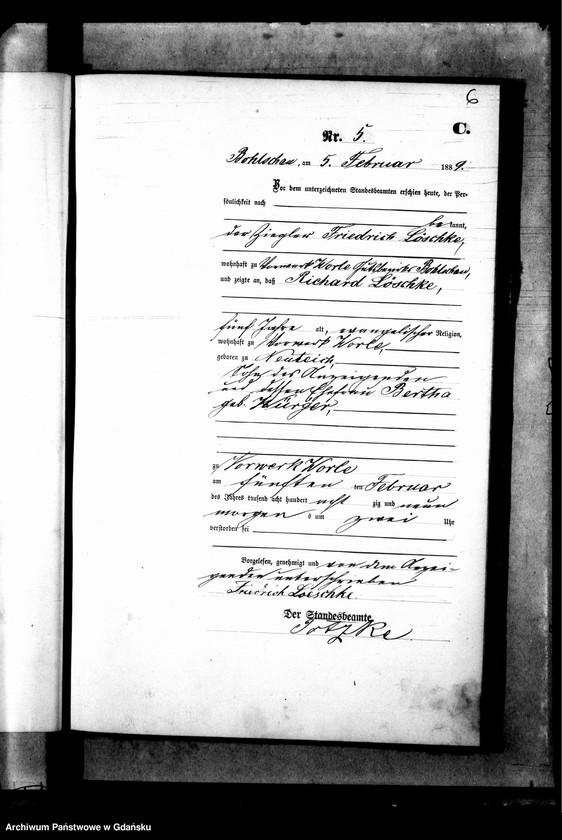 6
C.
Nr. 5.
Bohlschau, am 5. Februar 1889.
Vor dem unterzeichneten Standesbeamten erschien heute, der Per-
sönlichkeit nach
be kannt,
der Ziegler Friedrich Löschke,
wohnhaft zu Vorwerk Worle Gutsbezirks Bohlschau,
und zeigte an, daß Richard Löschke,
fünf Jahre alt, evangelischer Religion,
wohnhaft zu Vorwerk Worle,
geboren zu Neuteich,
Sohn des Anzeigenden
und dessen Ehefrau Bertha
geb. Würger,
zu Vorwerk Worle
am fünften ten Februar
des Jahres tausend acht hundert acht zig und neun
morgens um zwei Uhr
verstorben sei
Vorgelesen, genehmigt und von dem Anzei-
genden unterschrieben
Friedrich Loeschke
Der Standesbeamte.
Archiwum Państwowe w Gdańsku